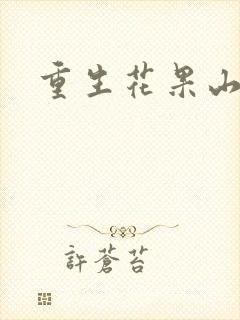 重生花果山
許蒼苔